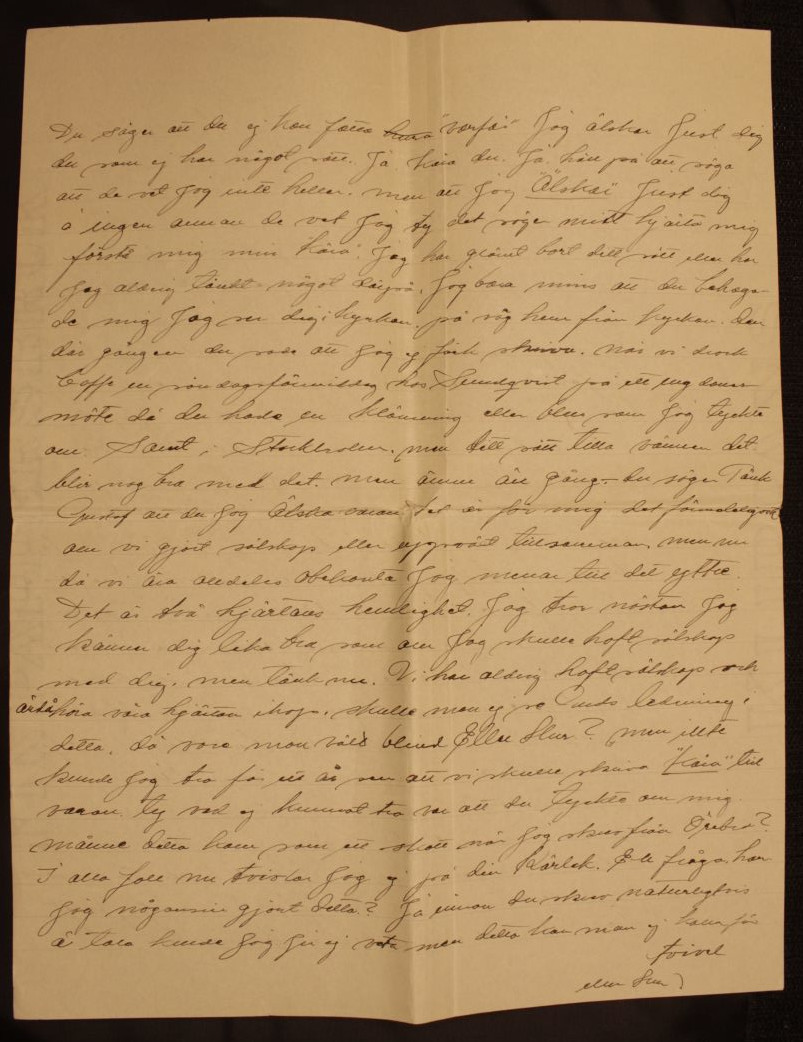 Du säger att du ej kan fatta hur "varför" Jag älskar Just Dig
du som ej har något sätt. Ja kära du. Ja håll på att säga
att de vet Jag inte heller. men att Jag "Älskar" Just dig
å ingen annan de vet Jag ty det säger mitt hjärta mig
förstå mig min "kära". Jag har glömt bort ditt sätt eller har
Jag aldrig tänkt något därpå. Jag bara mins att du behaga-
de mig Jag ser dig i kyrkan. på väg hem från kyrkan. den
där gången du sade att Jag ej fick skriva. När vi drack
Caffe en söndagsförmiddag hos Sundqvist på ett ungdoms
möte då du hade en klänning eller blus som Jag tyckte
om. Samt i Stockholm. men ditt sätt lilla vännen det
blir nog bra med det. men ännu än gång. du säger Tänk
Gustaf att du Jag Älska varan det är för mig det
om vi gjort sälskap eller uppväxt tillsammans men nu
då vi ära alldeles obekanta Jag menar till det yttre.
Det är två hjärtans hemlighet. Jag tror nästan Jag
känner dig lika bra som om Jag skulle haft sälskap
med dig. men tänk nu. Vi har aldrig haft sälskap och
ändå höra våra hjärtan ihop. skulle man ej se Guds ledning i
detta. då vore man väl blind Eller Hur? men inte
kunde Jag tro för ett år sen att vi skulle skriva "kära" till
varan. ty vad ej kunnat tro var att du tyckte om mig.
månne detta kom som ett skott när Jag skrev från Örebro?
I alla fall nu tvivlar Jag ej på din Kärlek. En fråga har
Jag någonsin gjort detta? Ja innan du skrev naturligtvis
å tala kunde Jag Ju ej veta men detta kan man ej kalla för
tvivel
eller Hur?